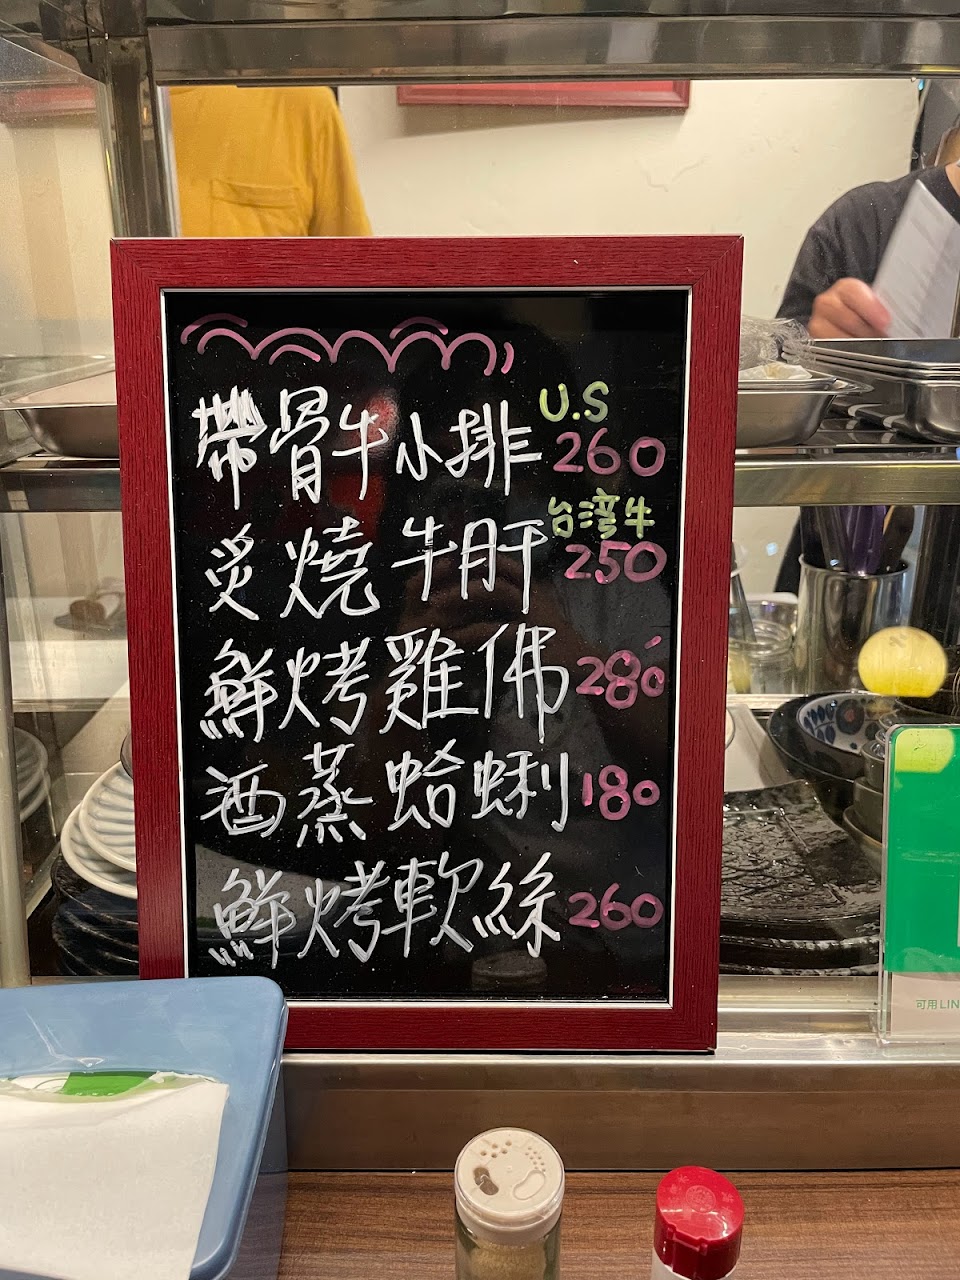 帶骨牛小排 U.S 260
炙燒牛肝 台湾牛 250
鮮烤雞佛 280
酒蒸蛤蜊 180
鮮烤軟絲 260
可用LIN